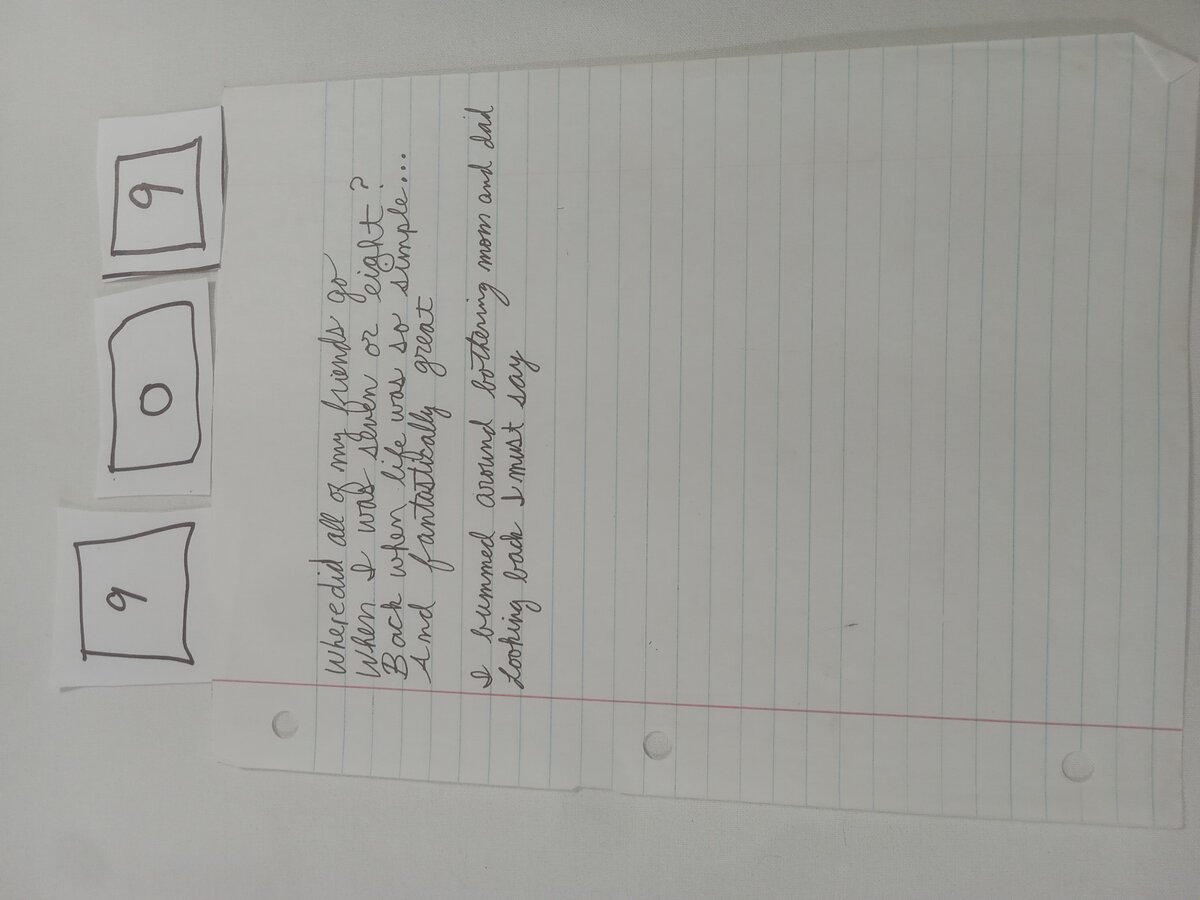 9 0 9
Where did all of my friends go
When I was seven or eight?
Back when life was so simple...
And fantastically great
I bummed around bothering mom and dad
Looking back I must say